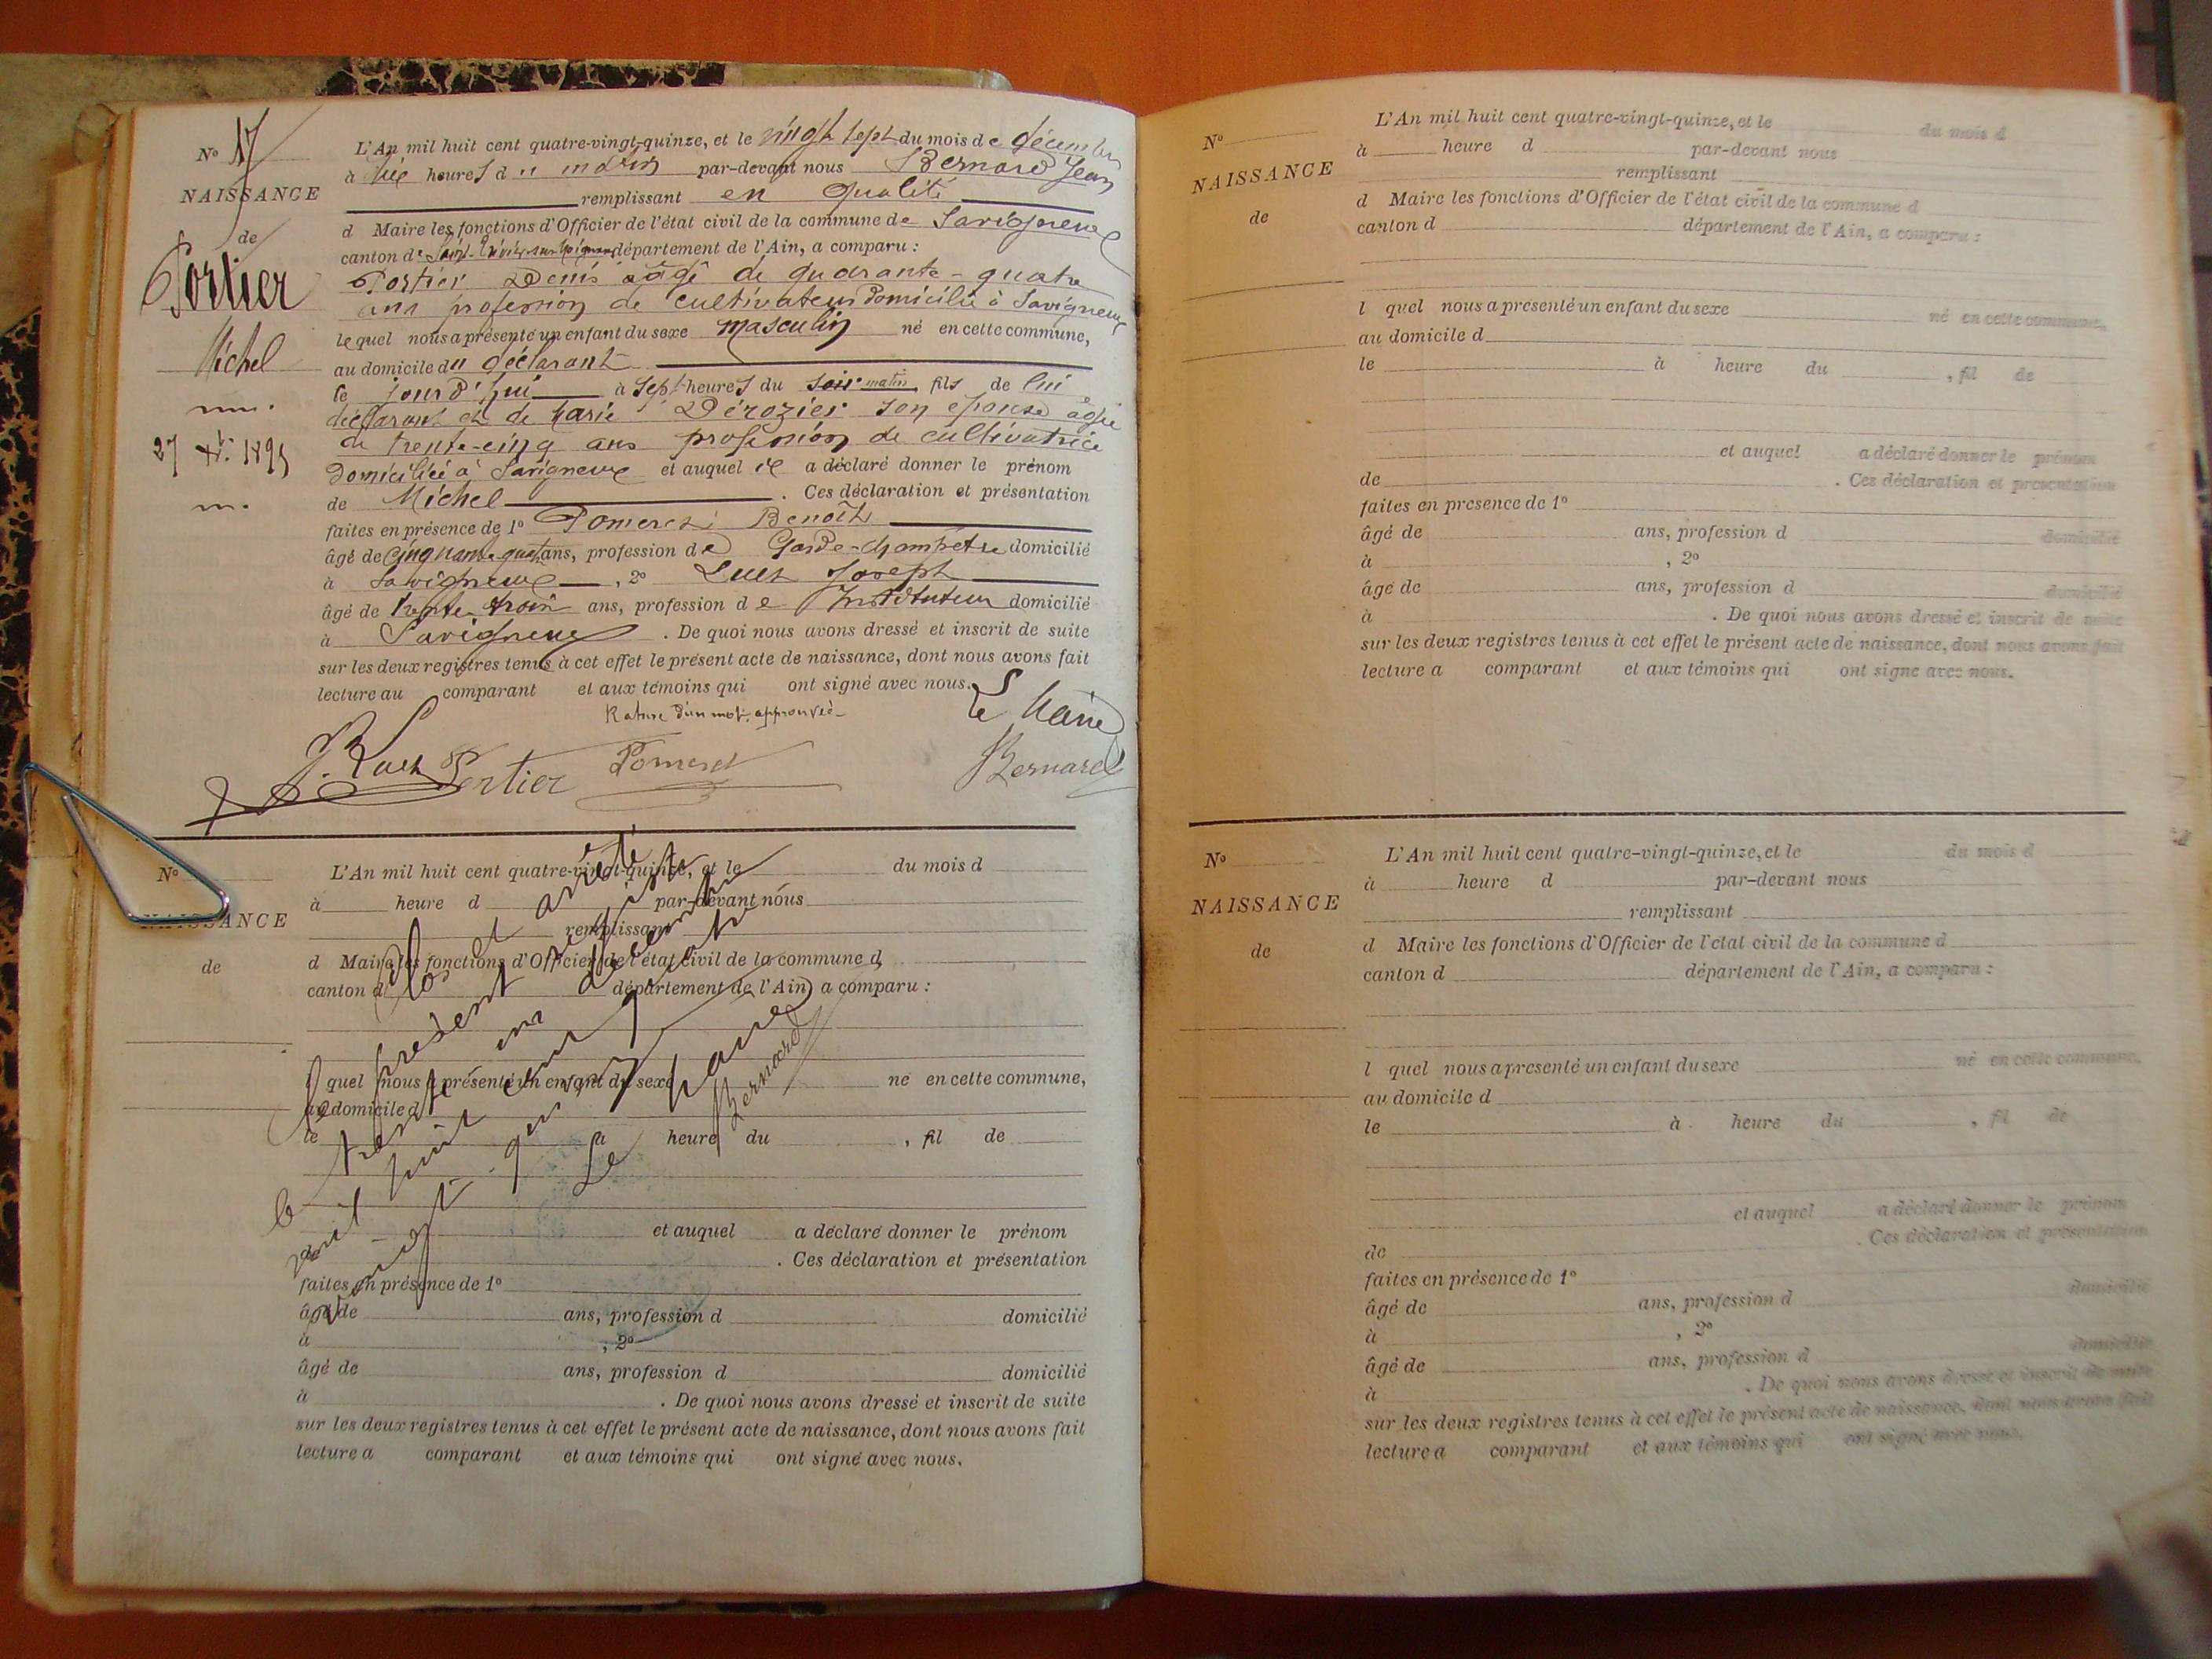 No 17
NAISSANCE
de
Portier
Michel
27 Xbre 1895
L'An mil huit cent quatre-vingt-quinze, et le vingt sept du mois de décembre
à dix heures du matin par-devant nous Bernard Jean
remplissant en qualité
d Maire les fonctions d'Officier de l'état civil de la commune de Savigneux
canton de département de l'Ain, a comparu :
Portier Denis âgé de quarante-quatre
ans profession de cultivateur domicilié à Savigneux
lequel nous a présenté un enfant du sexe masculin né en cette commune,
au domicile du déclarant
le jourd'hui à sept heures du soir matin fils de lui
déclarant et de Marie Dérozier son épouse âgée
de trente-cinq ans profession de cultivatrice
domiciliée à Savigneux et auquel il a déclaré donner le prénom
de Michel . Ces déclaration et présentation
faites en présence de 1o Pomeret Benoît
âgé de cinquante quatre ans, profession de Garde-champêtre domicilié
à Savigneux , 2o Luez Joseph
âgé de trente-trois ans, profession de Instituteur domicilié
à Savigneux . De quoi nous avons dressé et inscrit de suite
sur les deux registres tenus à cet effet le présent acte de naissance, dont nous avons fait
lecture au comparant et aux témoins qui ont signé avec nous.
Rature d'un mot approuvée
Le Maire
J. Luez Portier Pomeret Bernard
No
NAISSANCE
de
L'An mil huit cent quatre-vingt-quinze, et le du mois d
à heure d par-devant nous
remplissant
d Maire les fonctions d'Officier de l'état civil de la commune d
canton d département de l'Ain, a comparu :
l quel nous a présenté un enfant du sexe né en cette commune,
au domicile d
le à heure du , fil de
et auquel a déclaré donner le prénom
de . Ces déclaration et présentation
faites en présence de 1o
âgé de ans, profession d domicilié
à , 2o
âgé de ans, profession d domicilié
à . De quoi nous avons dressé et inscrit de suite
sur les deux registres tenus à cet effet le présent acte de naissance, dont nous avons fait
lecture a comparant et aux témoins qui ont signé avec nous.
Clos et arrêté
le présent registre
le trente un décembre
mil huit cent quatre
vingt-quinze
Le Maire
Bernard
No
NAISSANCE
de
L'An mil huit cent quatre-vingt-quinze, et le du mois d
à heure d par-devant nous
remplissant
d Maire les fonctions d'Officier de l'état civil de la commune d
canton d département de l'Ain, a comparu :
l quel nous a présenté un enfant du sexe né en cette commune,
au domicile d
le à heure du , fil de
et auquel a déclaré donner le prénom
de . Ces déclaration et présentation
faites en présence de 1o
âgé de ans, profession d domicilié
à , 2o
âgé de ans, profession d domicilié
à . De quoi nous avons dressé et inscrit de suite
sur les deux registres tenus à cet effet le présent acte de naissance, dont nous avons fait
lecture a comparant et aux témoins qui ont signé avec nous.
No
NAISSANCE
de
L'An mil huit cent quatre-vingt-quinze, et le du mois d
à heure d par-devant nous
remplissant
d Maire les fonctions d'Officier de l'état civil de la commune d
canton d département de l'Ain, a comparu :
l quel nous a présenté un enfant du sexe né en cette commune,
au domicile d
le à heure du , fil de
et auquel a déclaré donner le prénom
de . Ces déclaration et présentation
faites en présence de 1o
âgé de ans, profession d domicilié
à , 2o
âgé de ans, profession d domicilié
à . De quoi nous avons dressé et inscrit de suite
sur les deux registres tenus à cet effet le présent acte de naissance, dont nous avons fait
lecture a comparant et aux témoins qui ont signé avec nous.